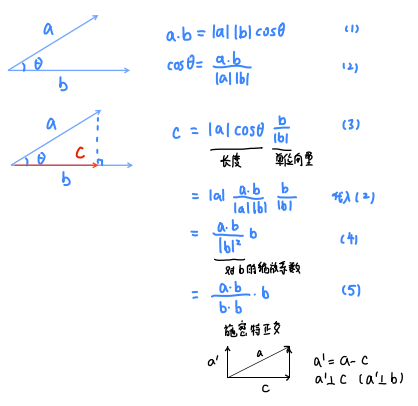 a
θ
b
a·b = |a| |b| cosθ (1)
cosθ = a·b / |a||b| (2)
a
c
θ
b
c = |a| cosθ b / |b| (3)
长度 单位向量
= |a| a·b / |a||b| b / |b| 代入(2)
= a·b / |b|² b (4)
对b的缩放系数
= a·b / b·b · b (5)
施密特正交
a'
a
c
a' = a - c
a'⊥c (a'⊥b)